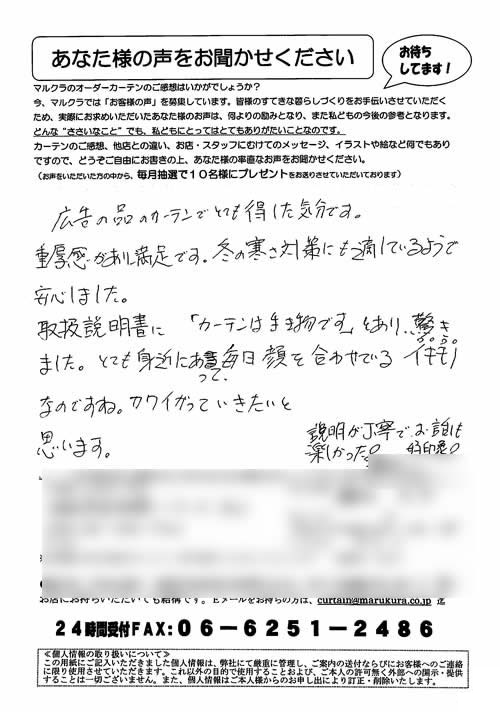 あなた様の声をお聞かせください
お待ち
してます!
マルクラのオーダーカーテンのご感想はいかがでしょうか?
今、マルクラでは「お客様の声」を募集しています。皆様のすてきな暮らしづくりをお手伝いさせていただく
ため、実際にお求めいただいたあなた様のお声は、何よりの励みとなり、また私どもの今後の参考となります。
どんな“ささいなこと”でも、私どもにとってはとてもありがたいことなのです。
カーテンのご感想、他店との違い、お店・スタッフにむけてのメッセージ、イラストや絵など何でもあり
ですので、どうぞご自由にお書きの上、あなた様の率直なお声をお聞かせください。
(お声をいただいた方の中から、毎月抽選で10名様にプレゼントをお送りさせていただいております)
広告の品のカーテンでとても得した気分です。
重厚感があり満足です。冬の寒さ対策にも適しているようで
安心しました。
取扱説明書に 「カーテンは生き物です」とあり、驚き
ました。とても身近にあって、毎日顔を合わせでるイキモノ
なのですね。カワイがっていきたいと
思います。
説明が丁寧で、お話も
楽しかった。好印象
お店にお持ちいただいても結構です。Eメールをお持ちの方は、curtain@marukura.co.jp 迄
24時間受付FAX:06-6251-2486
≪個人情報の取り扱いについて≫
この用紙にご記入いただきました個人情報は、弊社にて厳重に管理し、ご案内の送付ならびにお客様へのご連絡
に限り使用させていただきます。これ以外の目的で使用することおよび、ご本人の許可無く外部への開示・提供
することは一切ございません。また、個人情報はご本人様からのお申し出により訂正・削除いたします。